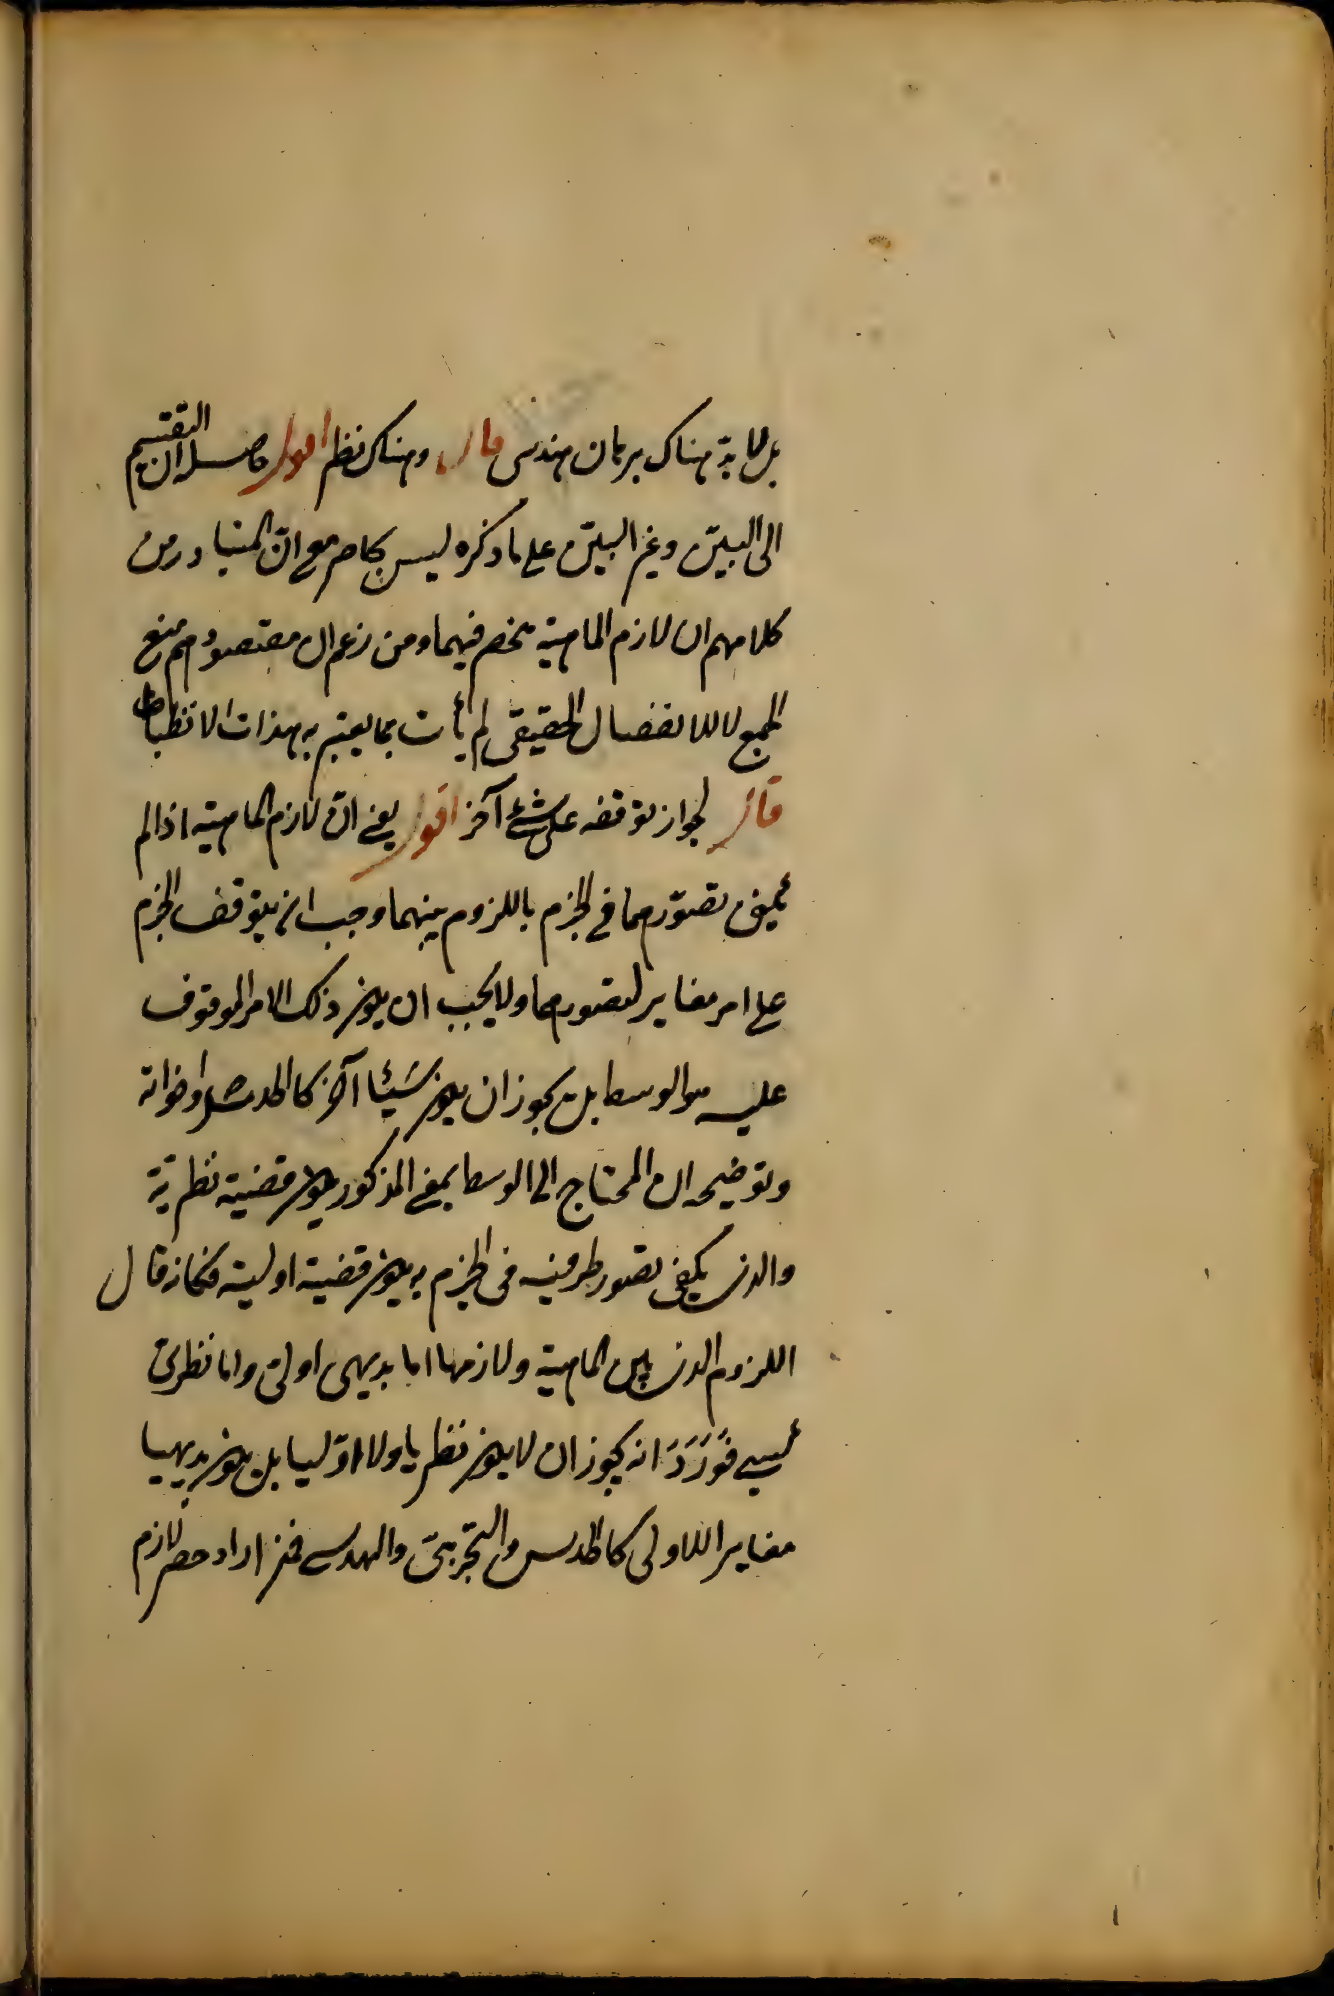 بل لا بدّ هناك برهان هندسي قال وهناك نظر اقول حاصله ان التقسيم
الى البيّن وغير البيّن على ما ذكره ليس بحاصر مع انّ المتبادر من
كلامهم ان لازم الماهية منحصر فيهما ومن زعم ان مقصودهم منع
الجمع لا الانفصال الحقيقي لم يأت بما يعتبر به هذا الانضباط
قال لجواز توقفه على شئ آخر اقول يعني انّ لازم الماهية اذا لم
يكف تصوّرهما في الجزم باللزوم بينهما وجب ان يتوقف الجزم
على امر مغاير لتصورهما ولا يجب ان يكون ذلك الامر الموقوف
عليه هو الوسط بل يجوز ان يكون شيئا آخر كالحدس واخواته
وتوضيحه ان المحتاج الى الوسط بمعنى المذكور يكون قضية نظريّة
والذي يكفي تصور طرفيه في الجزم به يكون قضية اولية فكانه قال
اللزوم الذي بين الماهية ولازمها اما بديهي اولىّ واما نظرىّ
كسبي فَوَرَدَ انه يجوز ان لا يكون نظريا ولا اوّليا بل يكون بديهيا
مغايرا للاولى كالحدسي والتجربىّ والحسي فمن اراد حصر لازم